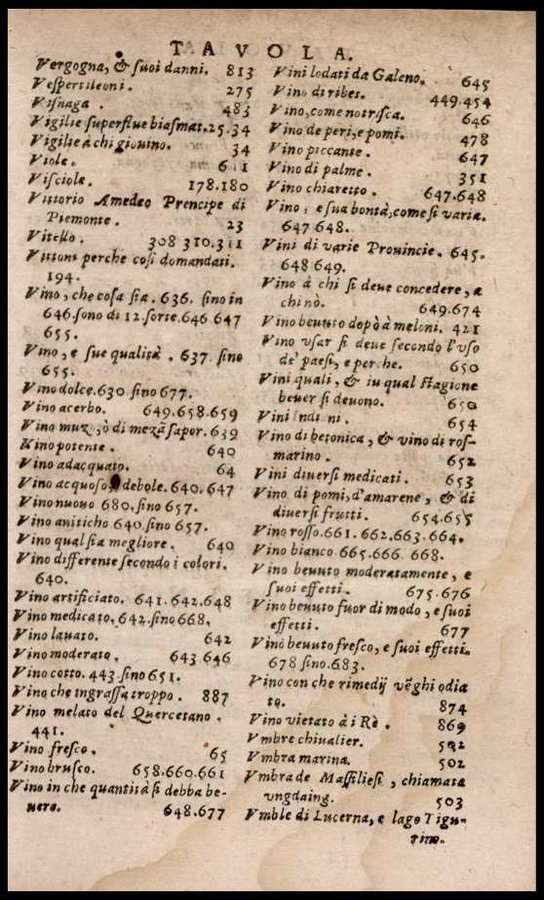 TAVOLA.
Vergogna, & suoi danni. 813
Vespertileoni. 275
Visnaga. 483
Vigilie superflue biasmat. 25.34
Vigilie à chi giouino. 34
Viole. 611
Visciole. 178.180
Vittorio Amedeo Prencipe di
Piemonte. 23
Vitello. 308 310.311
Vittoni perche cosi domandati.
194.
Vino, che cosa sia. 636. sino in
646. sono di 12. sorte. 646 647
655.
Vino, e sue qualità. 637. sino
655.
Vino dolce. 630 sino 677.
Vino acerbo. 649.658.659
Vino muz, ò di mezã sapor. 639
Vino potente. 640
Vino adacquato. 64
Vino acquoso debole. 640.647
Vino nuouo 680. sino 657.
Vino aniticho 640. sino 657.
Vino qual sia megliore. 640
Vino differente secondo i colori.
640.
Vino artificiato. 641.642.648
Vino medicato. 642. sino 668.
Vino lauato. 642
Vino moderato. 643 646
Vino cotto. 443. sino 651.
Vino che ingrassa troppo. 887
Vino melato del Quercetano.
441.
Vino fresco. 65
Vino brusco. 658.660.661
Vino in che quantità si debba be-
uere. 648.677
Vini lodati da Galeno. 645
Vino di ribes. 449.454
Vino, come notrisca. 646
Vino de peri, e pomi. 478
Vino piccante. 647
Vino di palme. 351
Vino chiaretto. 647.648
Vino, e sua bontà, come si varia.
647 648.
Vini di varie Prouincie. 645.
648 649.
Vino à chi si deue concedere, a
chi nò. 649.674
Vino beuuto dopò à meloni. 421
Vino vsar si deue secondo l'vso
de' paesi, e perche. 650
Vini quali, & iu qual stagione
beuer si deuono. 650
Vini ni. 654
Vino di betonica, & vino di ros-
marino. 652
Vini diuersi medicati. 653
Vino di pomi, d'amarene, & di
diuersi frutti. 654.655
Vino rosso. 661.662.663.664.
Vino bianco 665.666. 668.
Vino beuuto moderatamente, e
suoi effetti. 675.676
Vino beuuto fuor di modo, e suoi
effetti. 677
Vino beuuto fresco, e suoi effetti.
678 sino. 683.
Vino con che rimedij vẽghi odia
to. 874
Vino vietato à i Rè. 869
Vmbre chiualier.
Vmbra marina. 502
Vmbra de Massiliesi, chiamata
vngdaing. 503
Vmble di Lucerna, e lago Tigu-
rino.